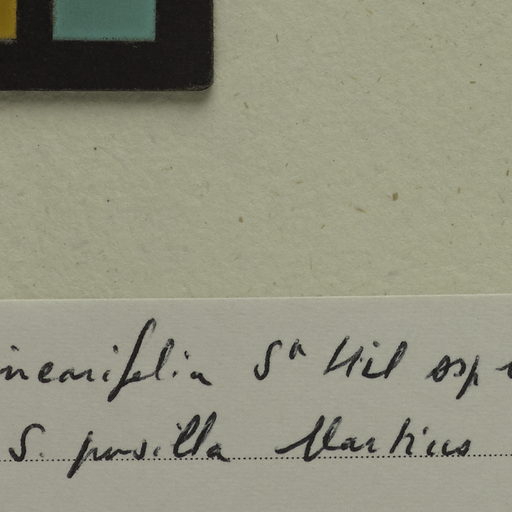 inearifolia Sᵗ Hil ssp
S. pusilla Martius